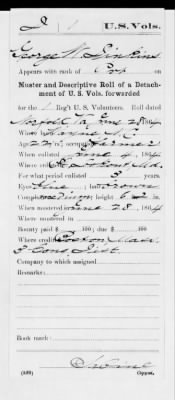 1 U.S. Vols.
George W.
Appears with rank of on
Muster and Descriptive Roll of a Detach-
ment of U. S. Vols. forwarded
for the 1 Reg't U. S. Volunteers. Roll dated
Norfolk Va June 28, 1864
Where born Wayne N.C.
Age 22 y'rs; occupation Farmer
When enlisted June 4, 1864
Where enlisted
For what period enlisted 3 years.
Eyes Blue; hair Brown
Complexion medium; height 6 ft. in.
When mustered in June 28, 1864
Where mustered in
Bounty paid $ 100; due $ 100
Where credited Boston Mass
3 Cong. Dist.
Company to which assigned
Remarks:
Book mark:
(339) Copyist.